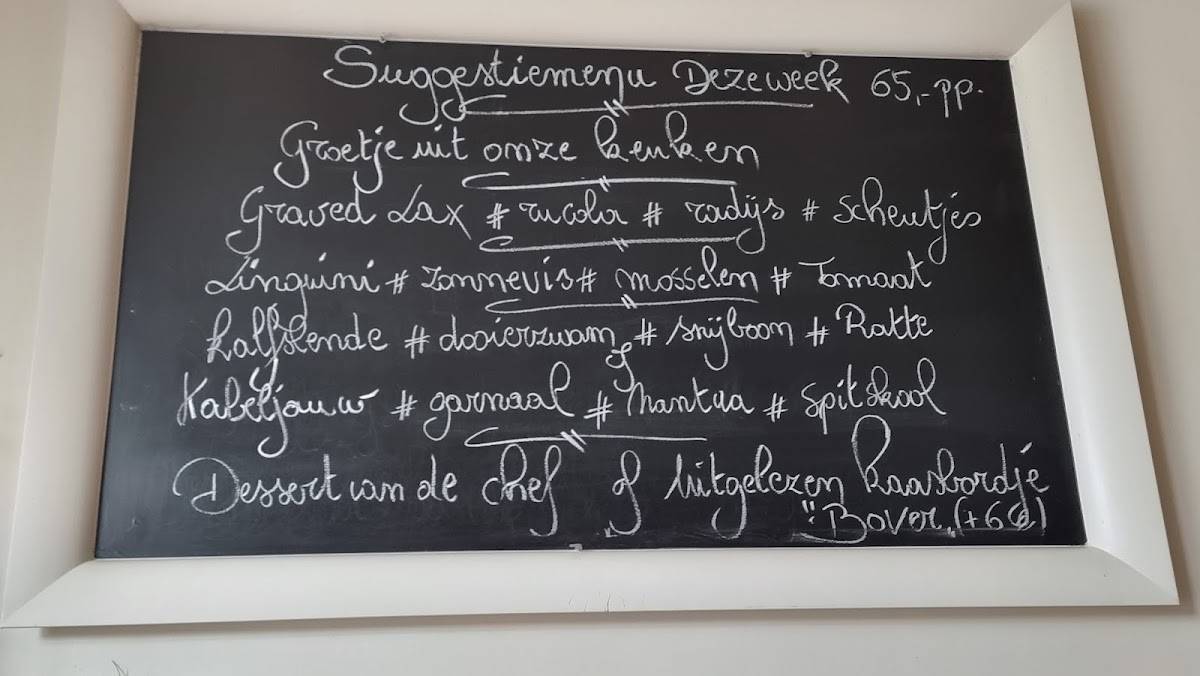 Suggestiemenu Deze week 65,- pp.
Groetje uit onze keuken
Graved Lax # rucola # radijs # scheutjes
Linguini # zonnevis # mosselen # Tomaat
Kalfslende # dooierzwam # snijboon # Ratte
of
Kabeljauw # garnaal # Mantua # spitskool
Dessert van de chef of uitgelezen kaasbordje
"Bover. (+6€)